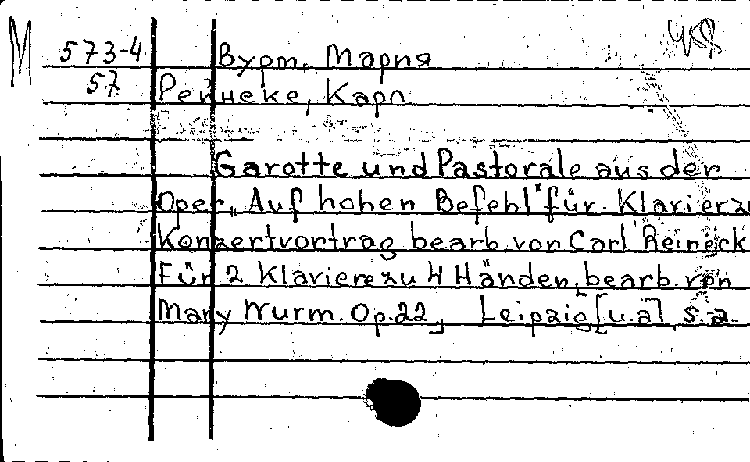 M 573-4 Вурм, Мария
57 Рейнеке, Карл
Garotte und Pastorale aus der
Oper „Auf hohen Befehl" für Klavier zu
Konzertvortrag bearb. von Carl Reineck
Für 2 Klaviere zu 4 Händen bearb. von
Mary Wurm. Op.22, Leipzig [u.a], s.a.